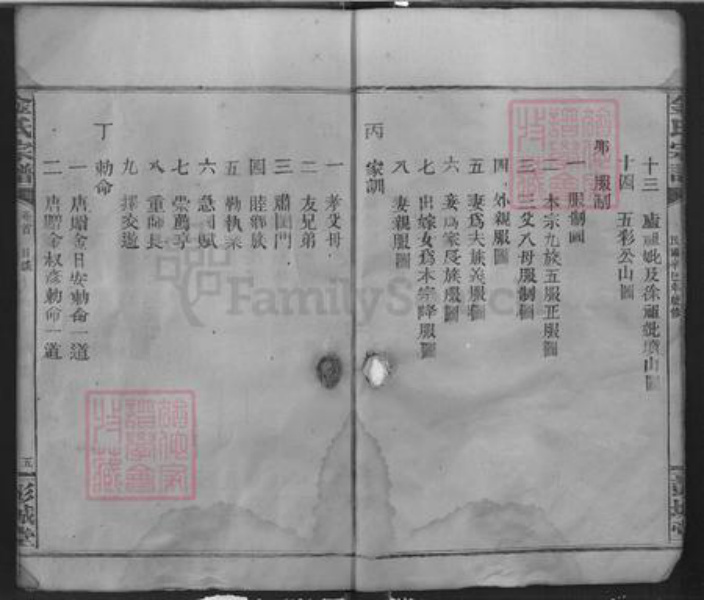 十三 廬祖妣及徐祖妣墳山圖
十四 五彩公山圖
服制
一 服制圖
二 本宗九族五服正服圖
三 三父八母服制圖
四 外親服圖
五 妻為夫族義服圖
六 妾為家長族服圖
七 出嫁女為本宗降服圖
八 妻親服圖
丙 家訓
一 孝父母
二 友兄弟
三 肅閨門
四 睦鄉族
五 勤執業
六 急國賦
七 崇薦享
八 重師長
九 擇交遊
丁 勅命
一 唐贈金日安勅命一道
二 唐贈金叔彥勅命一道
金氏宗譜
卷首 目錄
五
彭城堂
FamilySearch